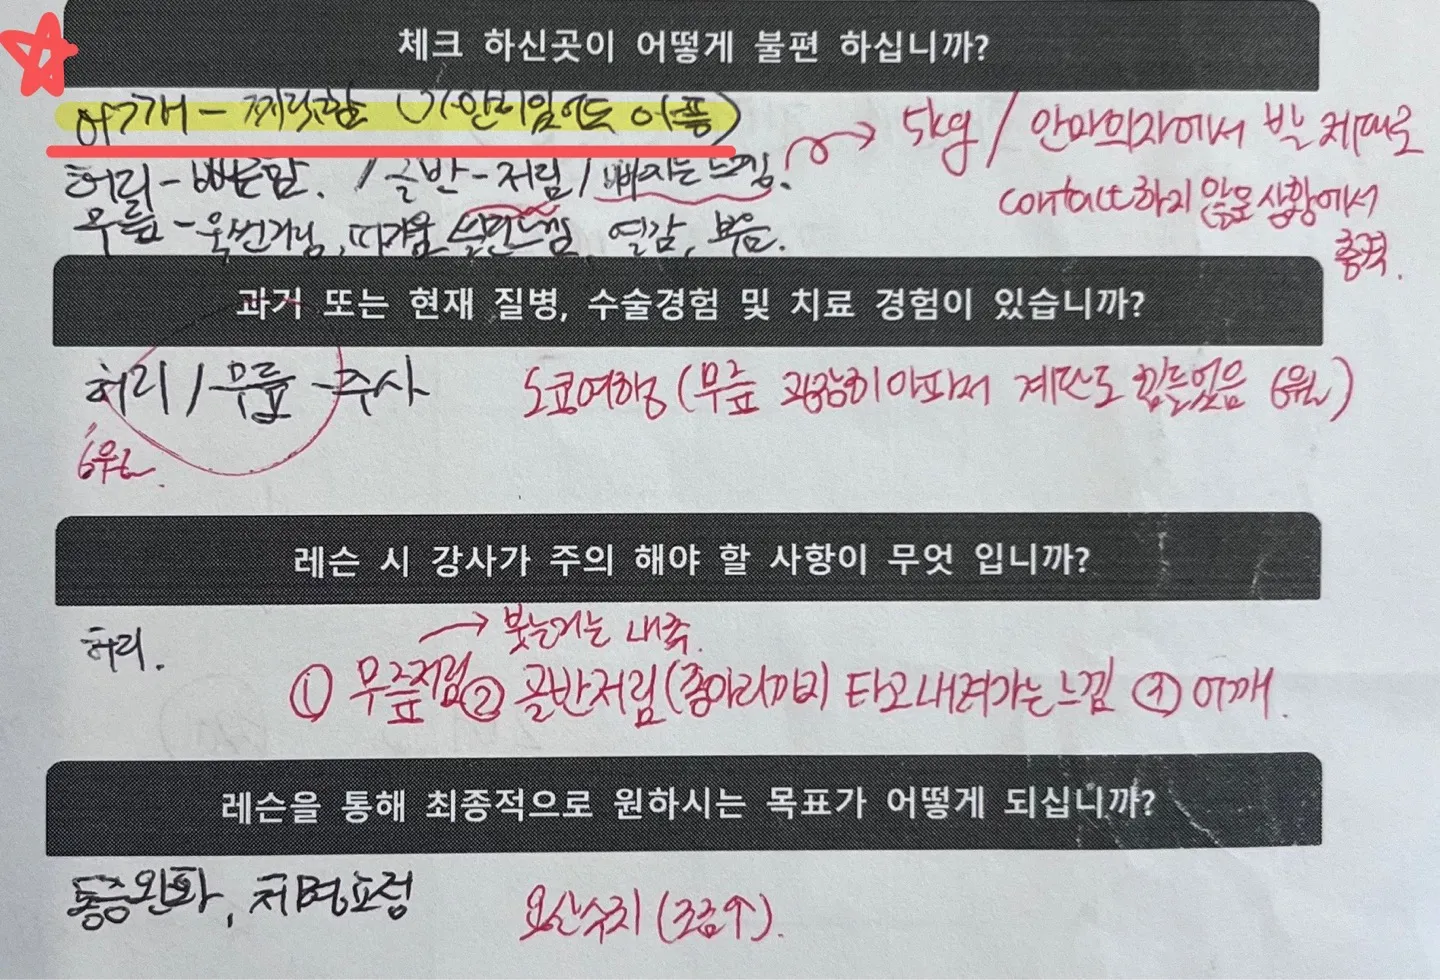 체크 하신곳이 어떻게 불편 하십니까?
어깨 - 찌릿함 (가만히있어도 아픔)
허리 - 뻐근함. / 골반 - 저림 / 빠지는느낌. → 5kg / 안마의자에서 발 제대로
contact하지 않은 상황에서
충격.
무릎 - 욱씬거림, 따가움 느낌, 열감, 부음.
과거 또는 현재 질병, 수술경험 및 치료 경험이 있습니까?
허리 / 무릎 - 주사 도쿄여행 (무릎 굉장히 아파서 계단도 힘들었음 6월)
6월.
레슨 시 강사가 주의 해야 할 사항이 무엇 입니까?
→ 붓는거는 내측.
허리.
① 무릎저림 ② 골반저림 (종아리까지) 타고내려가는느낌 ③ 어깨.
레슨을 통해 최종적으로 원하시는 목표가 어떻게 되십니까?
통증완화, 체형교정 요산수치 (조금↑).